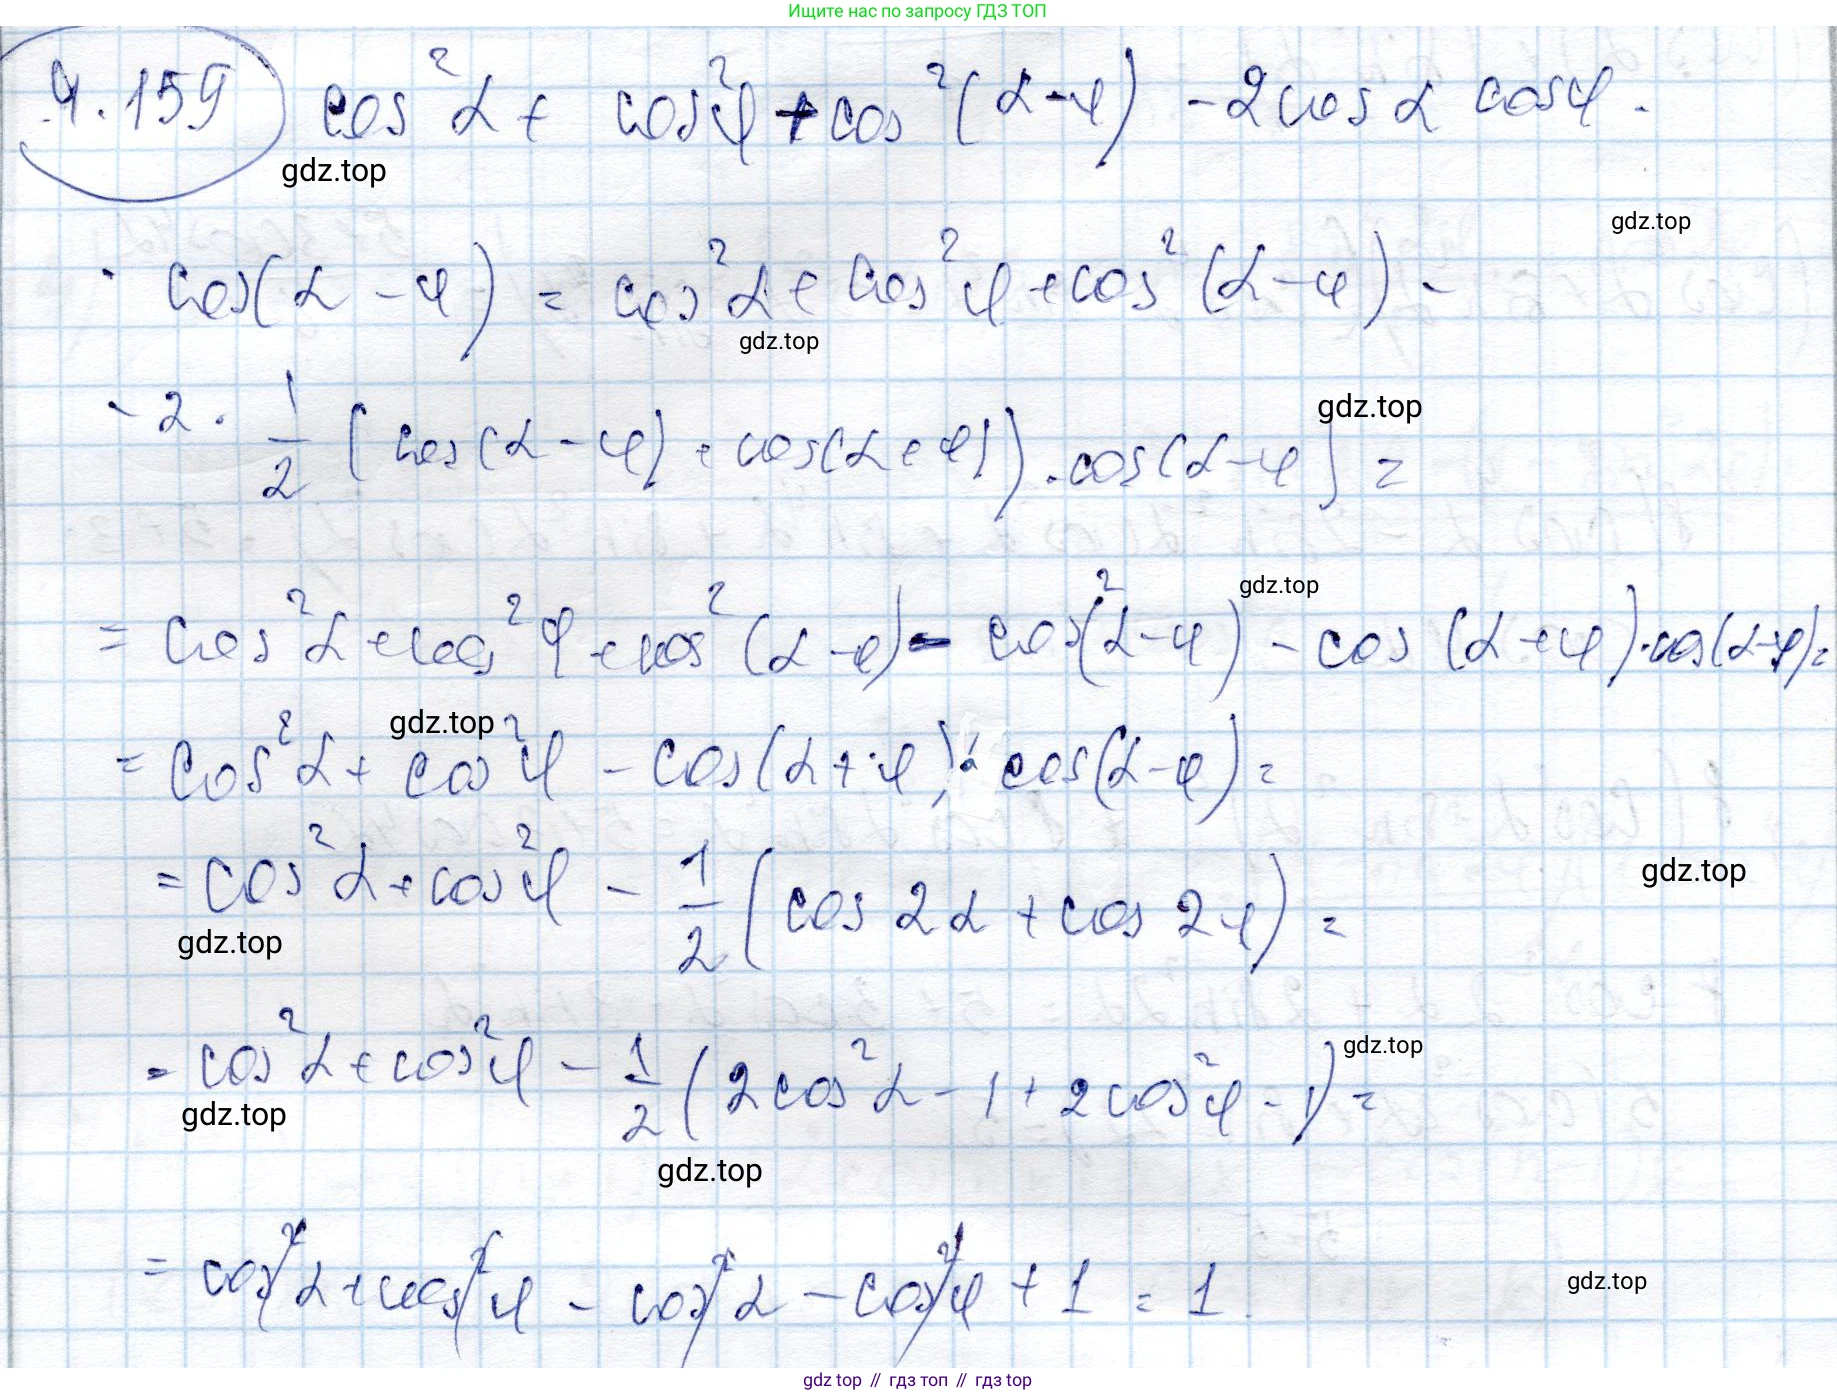 Ищите нас по запросу ГДЗ ТОП
4.159 cos²α + cos²φ + cos²(α-φ) - 2cosα cosφ ·
gdz.top
gdz.top
· cos(α-φ) = cos²α + cos²φ + cos²(α-φ) -
gdz.top
- 2 · 1/2 (cos(α-φ) + cos(α+φ)) · cos(α-φ) =
gdz.top
gdz.top
= cos²α + cos²φ + cos²(α-φ) - cos²(α-φ) - cos(α+φ)·cos(α-φ) =
gdz.top
= cos²α + cos²φ - cos(α+φ) · cos(α-φ) =
= cos²α + cos²φ - 1/2 (cos 2α + cos 2φ) =
gdz.top
gdz.top
= cos²α + cos²φ - 1/2 (2cos²α - 1 + 2cos²φ - 1) =
gdz.top
gdz.top
gdz.top
= cos²α + cos²φ - cos²α - cos²φ + 1 = 1.
gdz.top
gdz top // гдз топ // гдз top